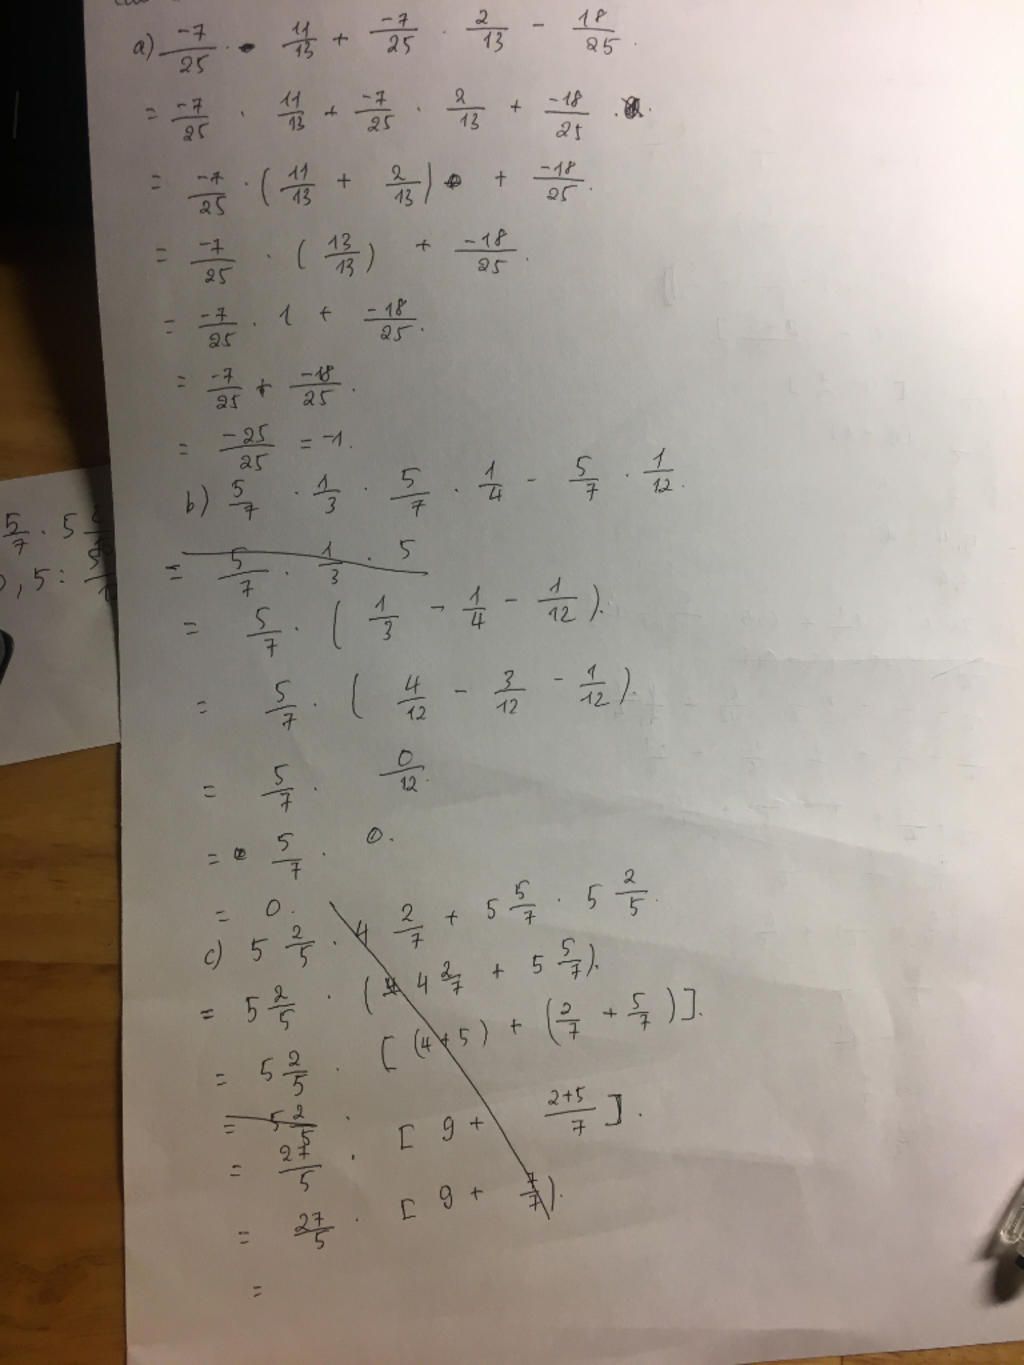 a) -7/25 · 11/13 + -7/25 · 2/13 - 18/25.
= -7/25 · 11/13 + -7/25 · 2/13 + -18/25.
= -7/25 · (11/13 + 2/13) + -18/25.
= -7/25 · (13/13) + -18/25.
= -7/25 · 1 + -18/25.
= -7/25 + -18/25.
= -25/25 = -1.
b) 5/7 · 1/3 · 5/7 · 1/4 - 5/7 · 1/12.
= 5/7 · 1/3 · 5
= 5/7 · (1/3 - 1/4 - 1/12).
= 5/7 · (4/12 - 3/12 - 1/12).
= 5/7 · 0/12.
= 5/7 · 0.
= 0.
c) 5 2/5 · 4 2/7 + 5 5/7 · 5 2/5.
= 5 2/5 · (4 2/7 + 5 5/7).
= 5 2/5 · [(4+5) + (2/7 + 5/7)].
= 5 2/5 · [9 + 2+5/7].
= 27/5
= 27/5 · [9 + 7/7).
=
5/7 · 5
, 5 :